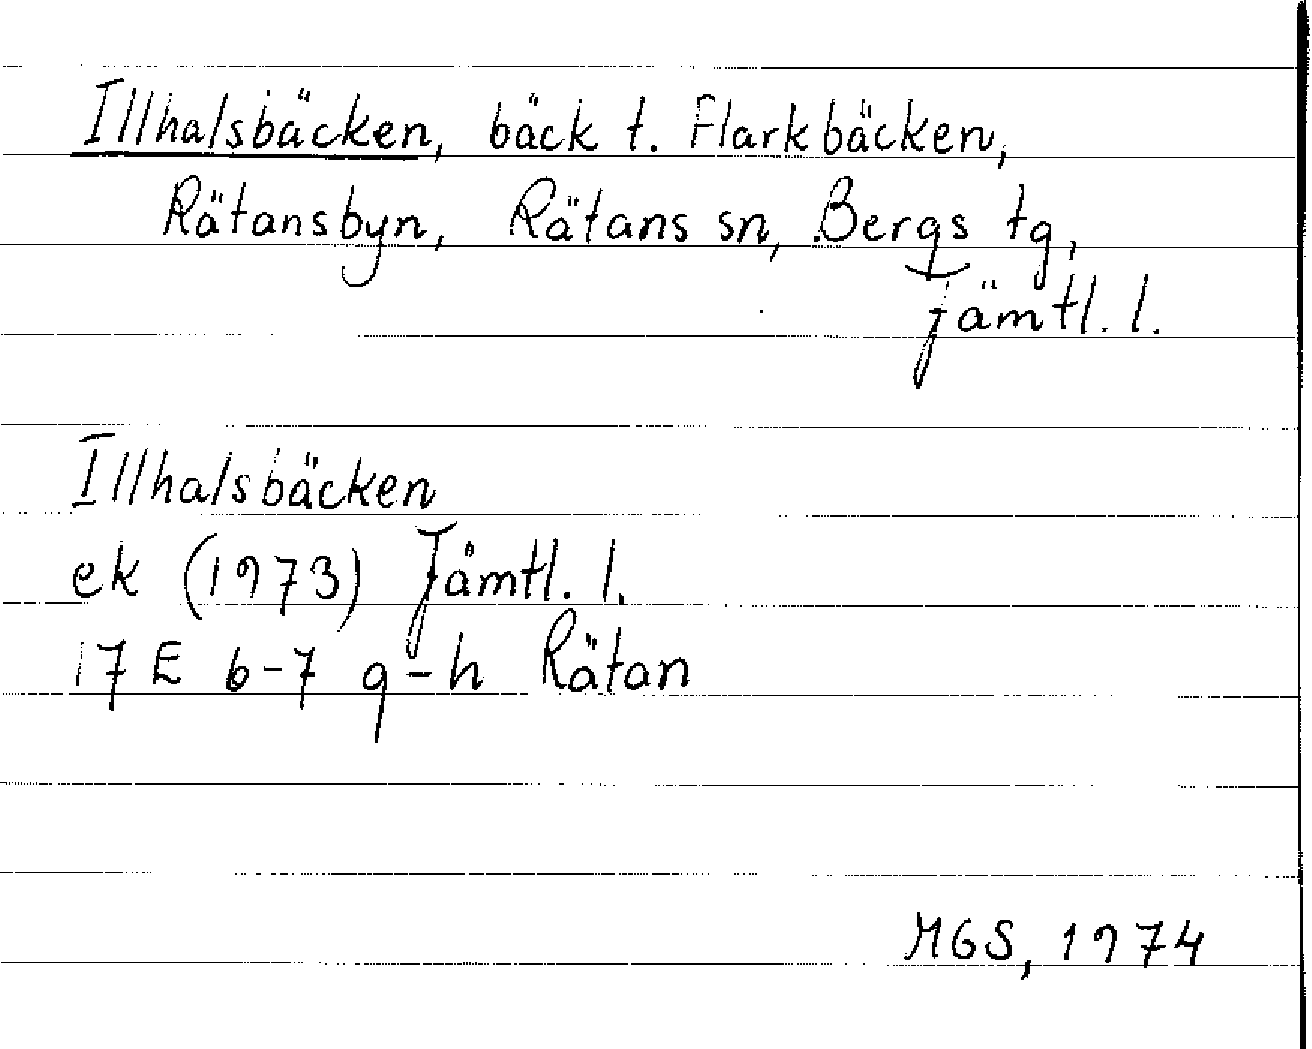 Illhalsbäcken, bäck t. Flarkbäcken,
Rätansbyn, Rätans sn, Bergs tg,
Jämtl. l.
Illhalsbäcken
ek (1973) Jämtl. l.
17 E 6-7 g-h Rätan
MGS, 1974